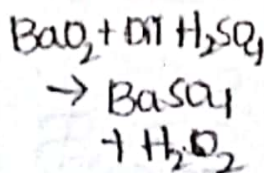 BaO₂ + Dil H₂SO₄
→ BaSO₄
+ H₂O₂